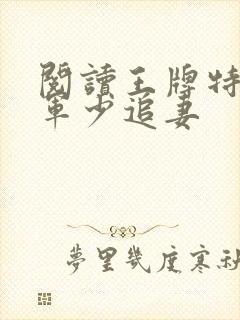 閱讀王牌特
軍少追妻
夢里幾度寒秋